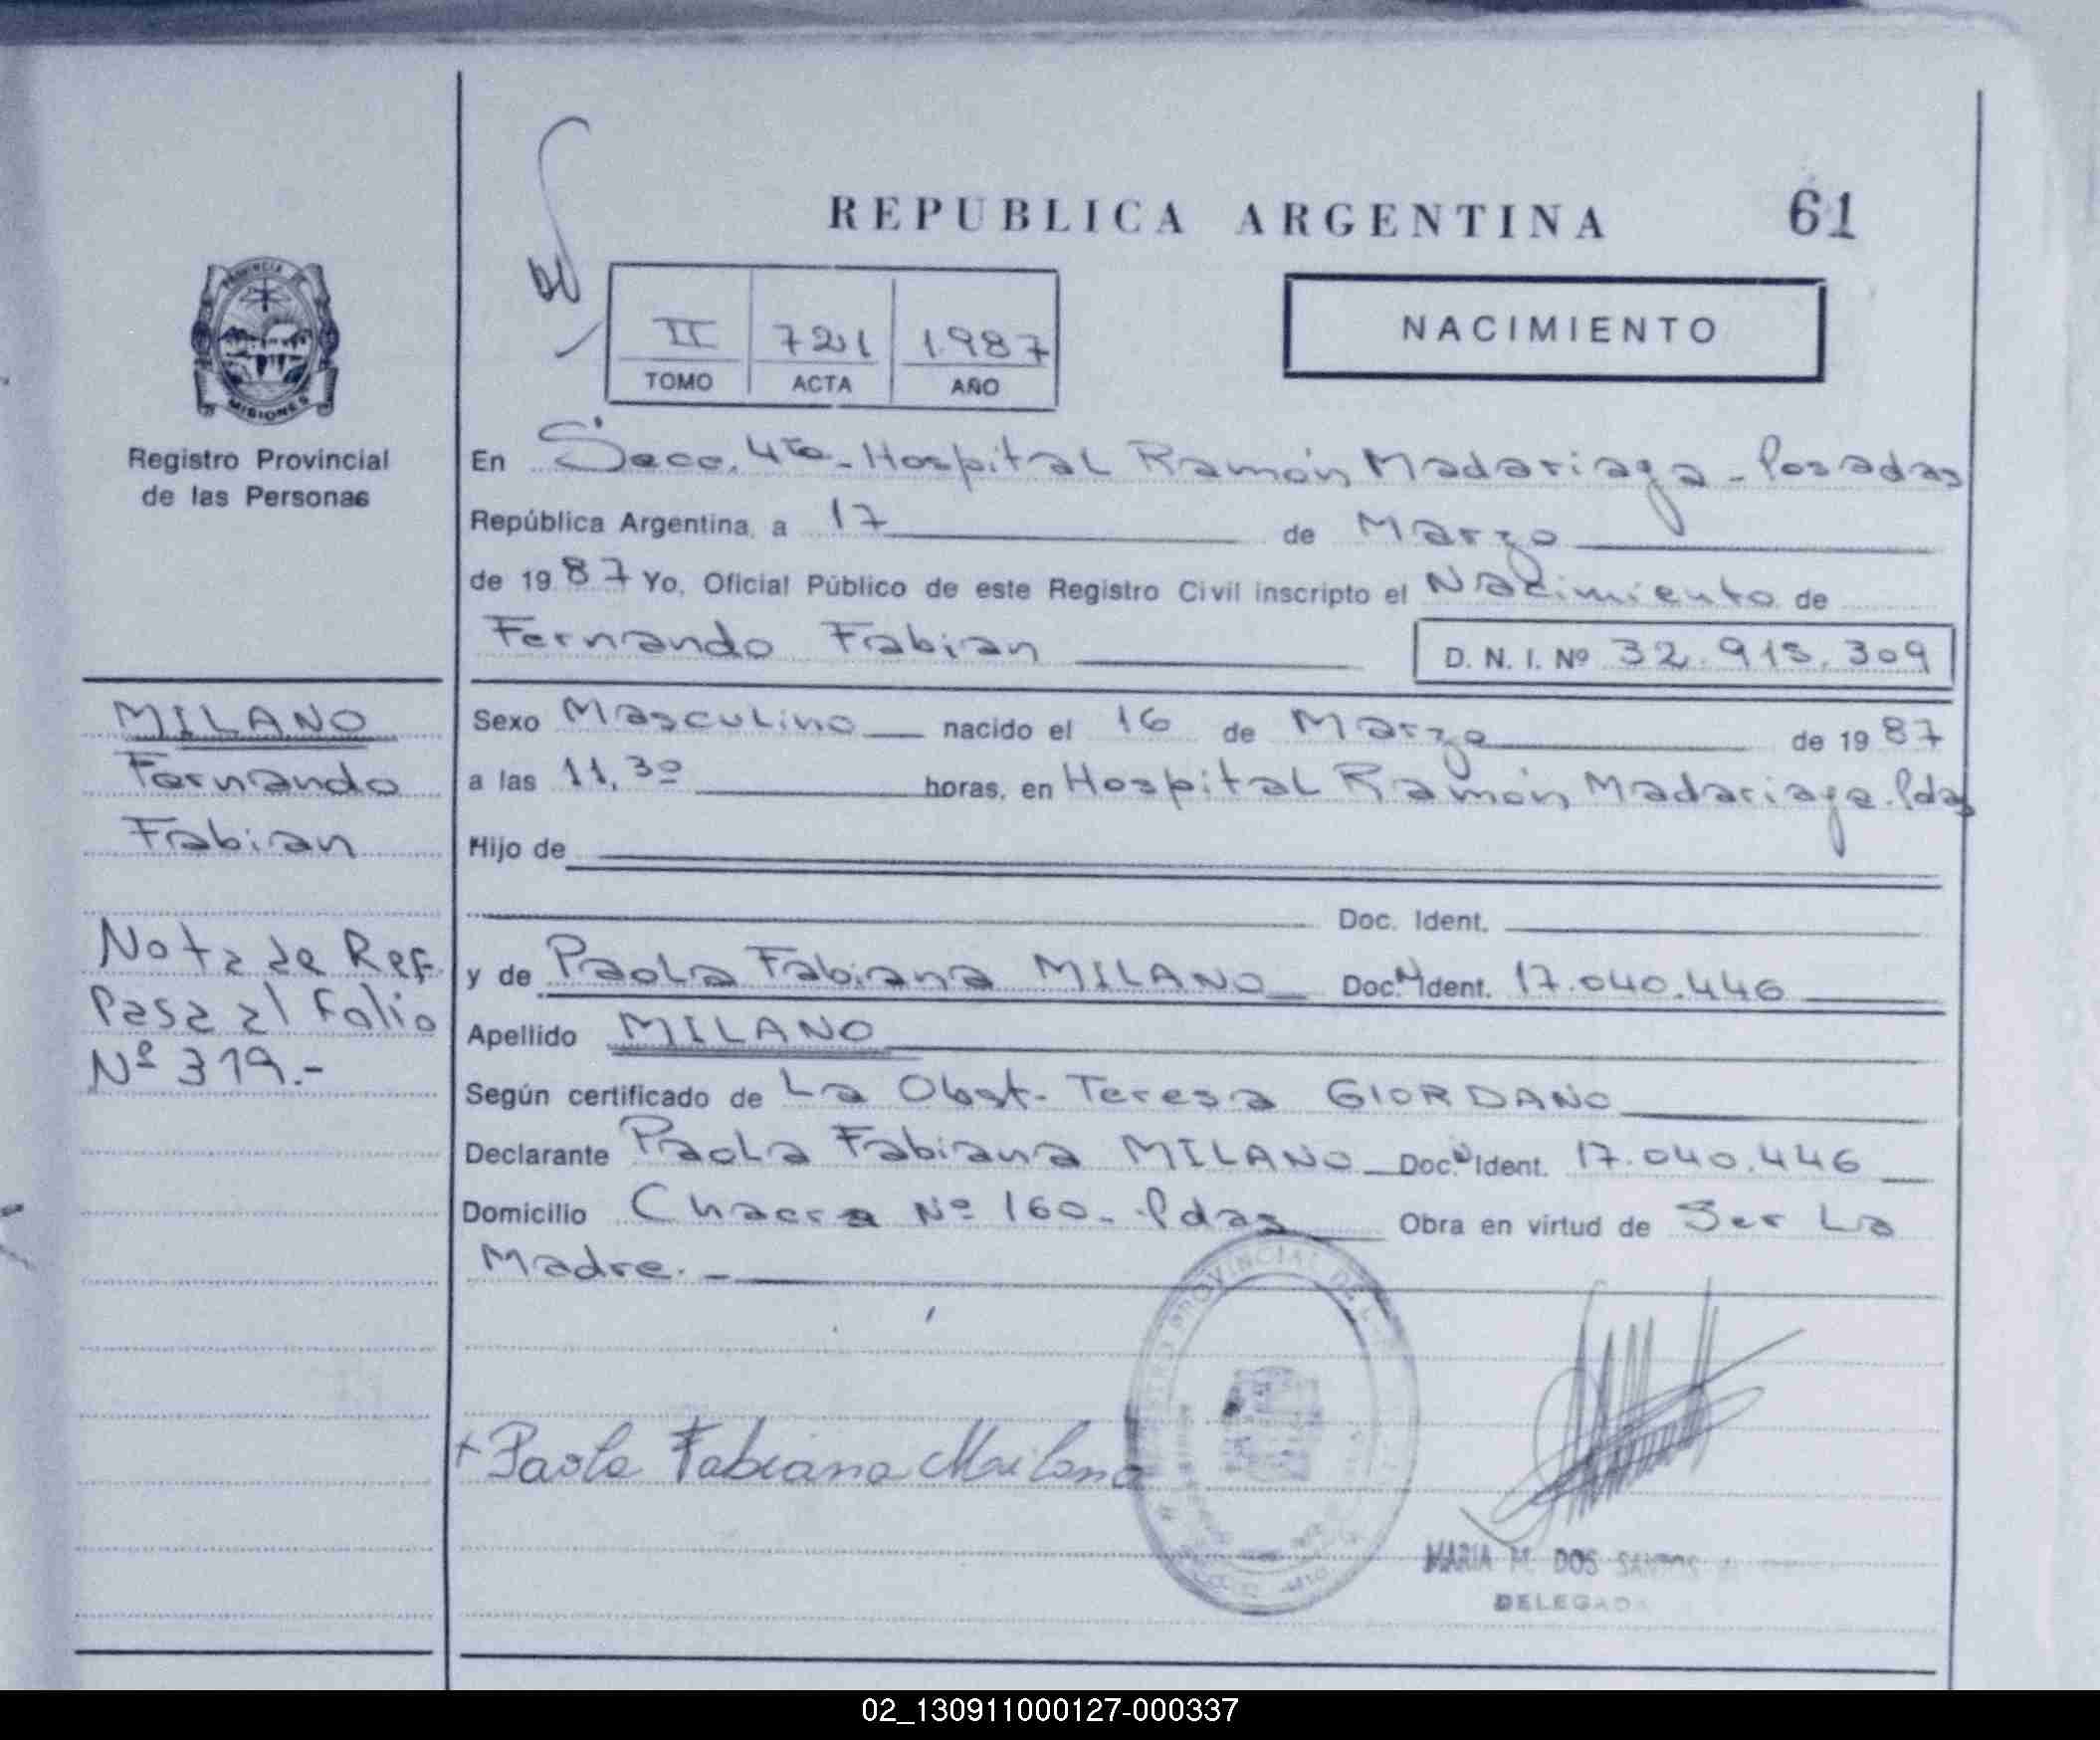 REPUBLICA ARGENTINA 61
PROVINCIA DE
MISIONES
Registro Provincial
de las Personas
II 721 1987
TOMO ACTA AÑO
NACIMIENTO
En Secc. 4ta - Hospital Ramón Madariaga - Posadas
República Argentina, a 17 de Marzo
de 1987 Yo, Oficial Público de este Registro Civil inscripto el Nacimiento de
Fernando Fabian D. N. I. Nº 32.915.309
MILANO
Fernando
Fabian
Nota de Ref.
Pasa al Folio
Nº 319.-
Sexo Masculino nacido el 16 de Marzo de 1987
a las 11,30 horas, en Hospital Ramón Madariaga. Pdas
Hijo de
Doc. Ident.
y de Paola Fabiana MILANO Doc. Ident. 17.040.446
Apellido MILANO
Según certificado de La Obst. Teresa GIORDANO
Declarante Paola Fabiana MILANO Doc. Ident. 17.040.446
Domicilio Chacra Nº 160 - Pdas Obra en virtud de Ser La
Madre. -
PROVINCIAL DE
+ Paola Fabiana Milano
MARIA M. DOS SANTOS
DELEGADA
02_130911000127-000337